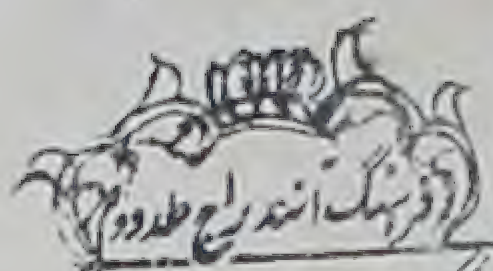 فرهنگ انندراج جلد دوم